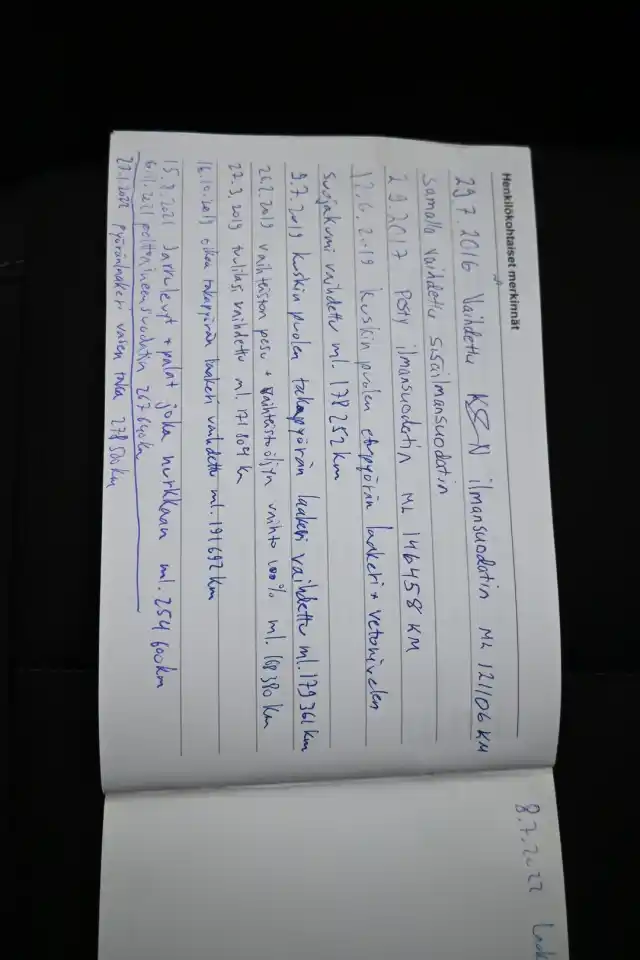 Henkilökohtaiset merkinnät
29.7.2016 Vaihdettu K&N ilmansuodatin ML 121106 KM
samalla vaihdettu sisäilmansuodatin
2.9.2017 Pösy ilmansuodatin ML 146458 KM
12.6.2019 kuskin puolen etupyörän laakeri + vetonivelen
suojakumi vaihdettu ml. 178 252 km
9.7.2019 kuskin puolen takapyörän laakeri vaihdettu ml. 179 361 km
26.2.2019 vaihteiston pesu + vaihteistoöljyn vaihto 100% ml. 168 380 km
22.3.2019 tulilasi vaihdettu ml. 171 804 km
16.10.2019 oikea takapyörän laakeri vaihdettu ml. 191 692 km
15.8.2021 Jarrulevyt + palat joka nurkkaan ml. 254 600 km
6.11.2021 polttoaineensuodatin 267 640 km
27.1.2022 pyöränlaakeri vasen taka 278 500 km
8.7.2022